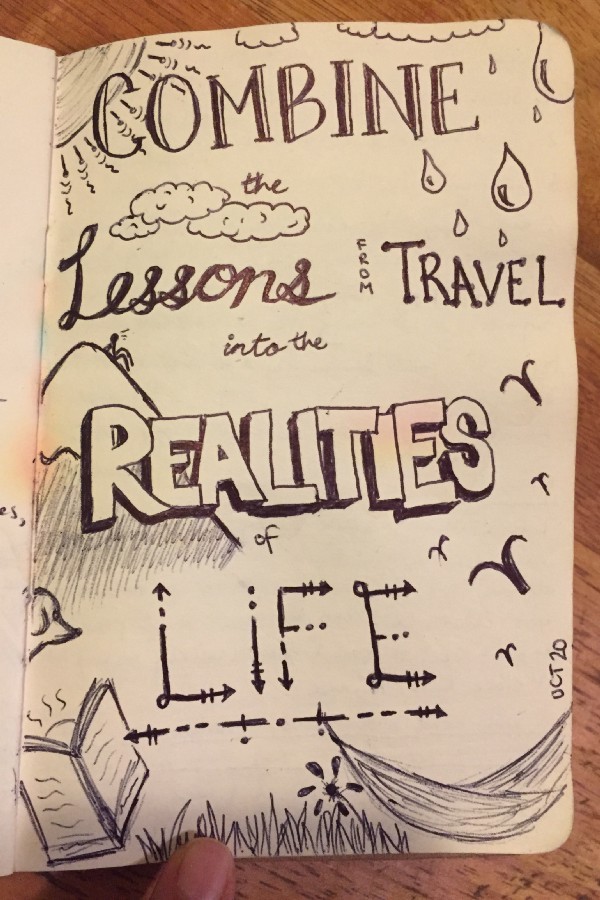 COMBINE
the
Lessons FROM TRAVEL
into the
REALITIES
of
LIFE
OCT 20
es,